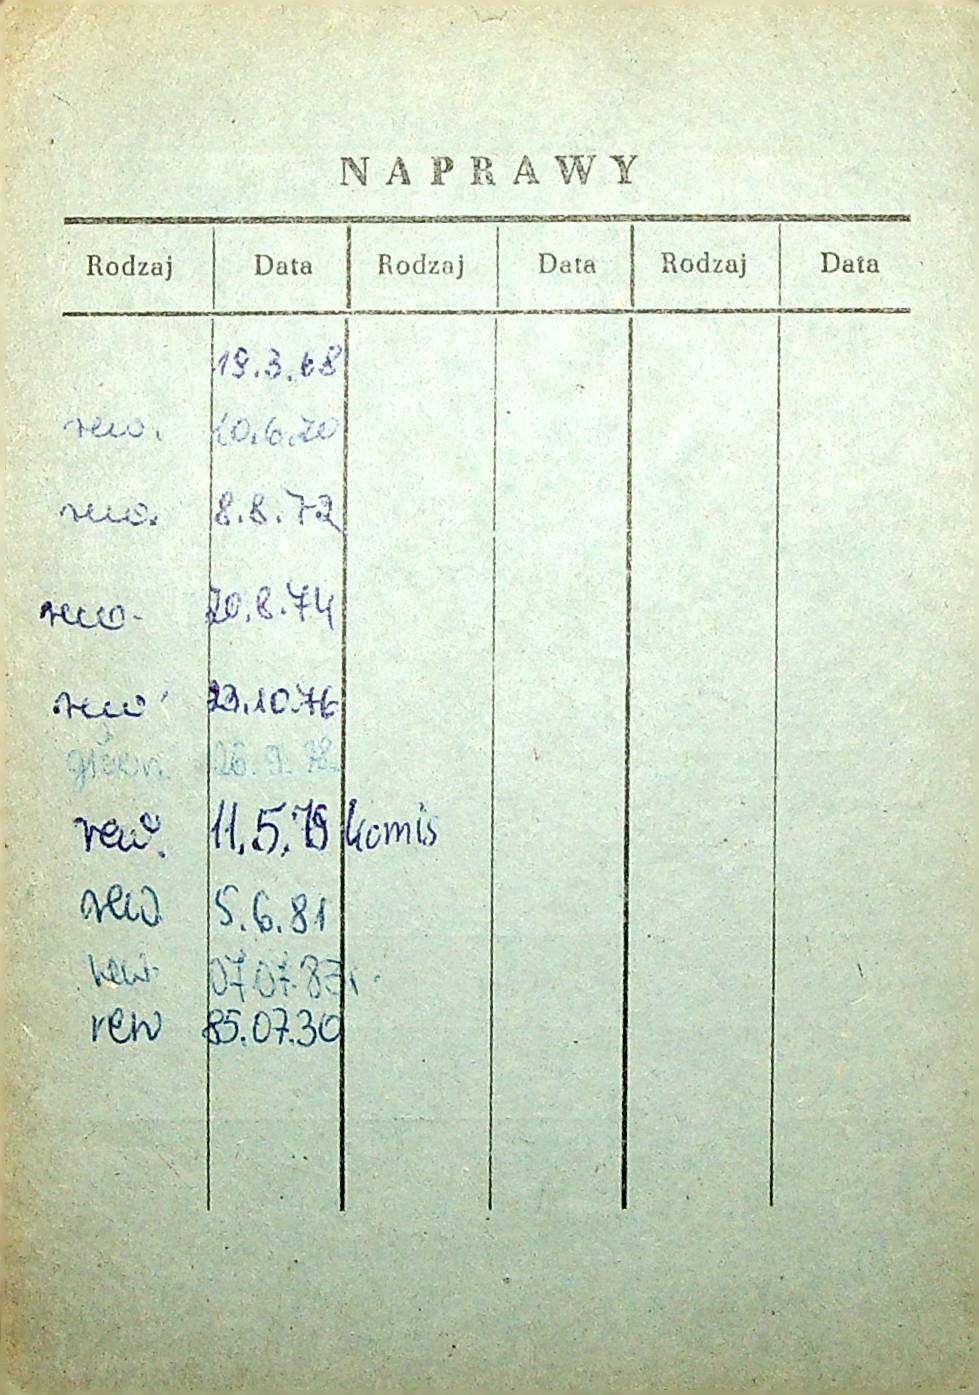 NAPRAWY
Rodzaj Data Rodzaj Data Rodzaj Data
19.3.68
rew. 10.6.70
rew. 8.8.72
rew. 20.8.74
rew. 10.76
26.9.78
rew. 11.5.79 komis
rew 5.6.81
rew. 07.07.83r.
rew 85.07.30